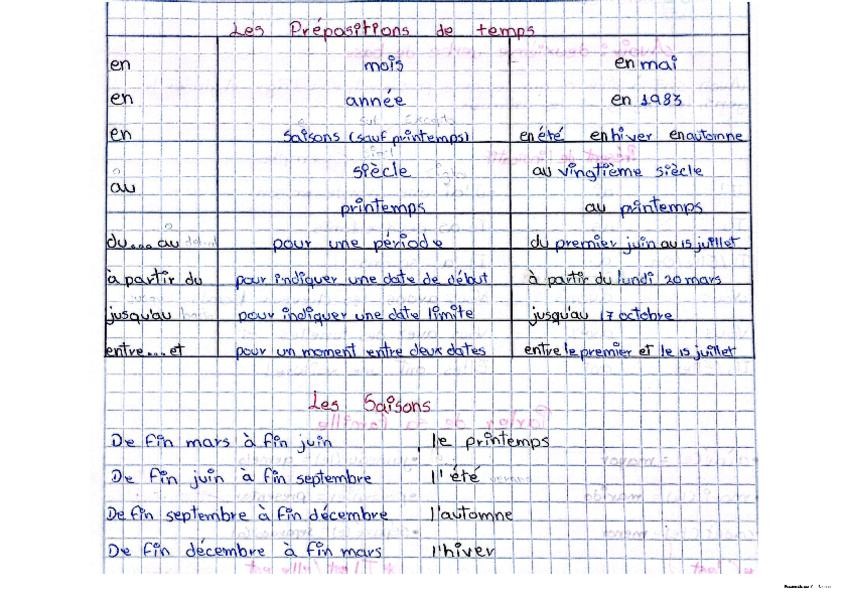 Les Prépositions de temps
en mois en mai
en année en 1983
en saisons (sauf printemps) en été en hiver en automne
siècle au vingtième siècle
au
printemps au printemps
du... au pour une période du premier juin au 15 juillet
à partir du pour indiquer une date de début à partir du lundi 20 mars
jusqu'au pour indiquer une date limite jusqu'au 17 octobre
entre... et pour un moment entre deux dates entre le premier et le 15 juillet
Les Saisons
De fin mars à fin juin le printemps
De fin juin à fin septembre l'été
De fin septembre à fin décembre l'automne
De fin décembre à fin mars l'hiver